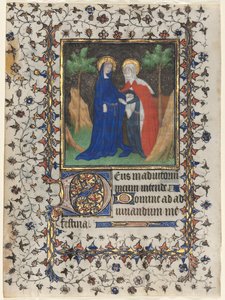 Deus in adiutorium
meum intende.
Domine ad ad
iuuandum me
festina.